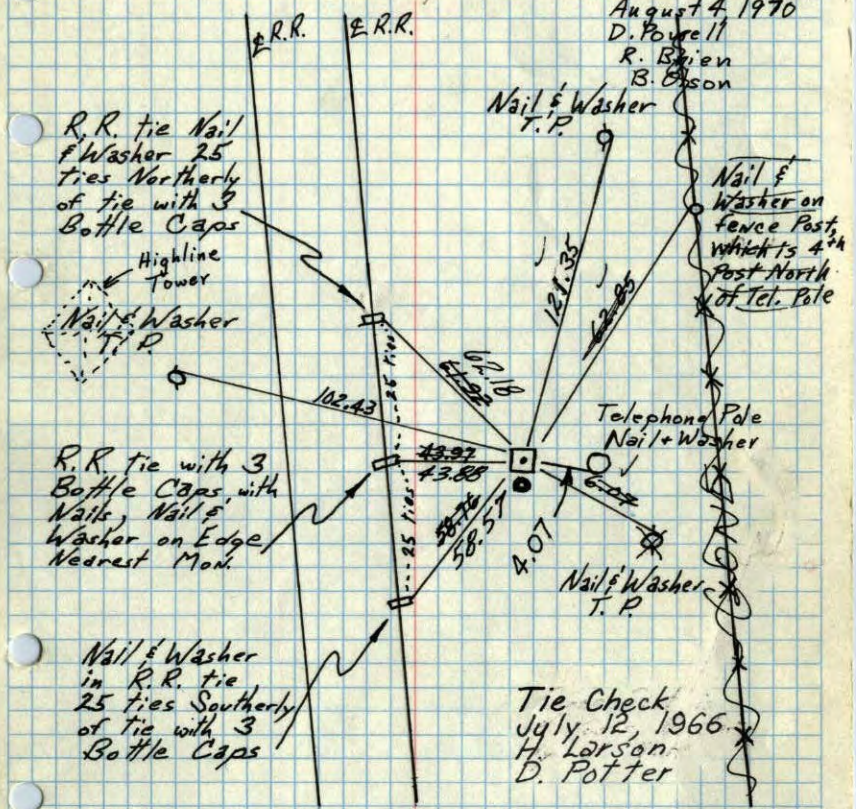 August 4 1970
D. Powell
R. Brien
B. Olson
℄ R.R.
℄ R.R.
Nail & Washer
T.P.
R.R. tie Nail
& Washer 25
ties Northerly
of tie with 3
Bottle Caps
Nail &
Washer on
fence Post,
which is 4th
Post North
of Tel. Pole
Highline
Tower
Nail & Washer
T.P.
121.35
62.85
25 ties
62.18
61.92
102.43
Telephone Pole
Nail + Washer
43.97
43.88
6.07
R.R. tie with 3
Bottle Caps, with
Nails, Nail &
Washer on Edge
Nearest Mon.
25 ties
58.76
58.57
4.07
Nail & Washer
T.P.
Nail & Washer
in R.R. tie
25 ties Southerly
of tie with 3
Bottle Caps
Tie Check
July 12, 1966
H. Larson
D. Potter